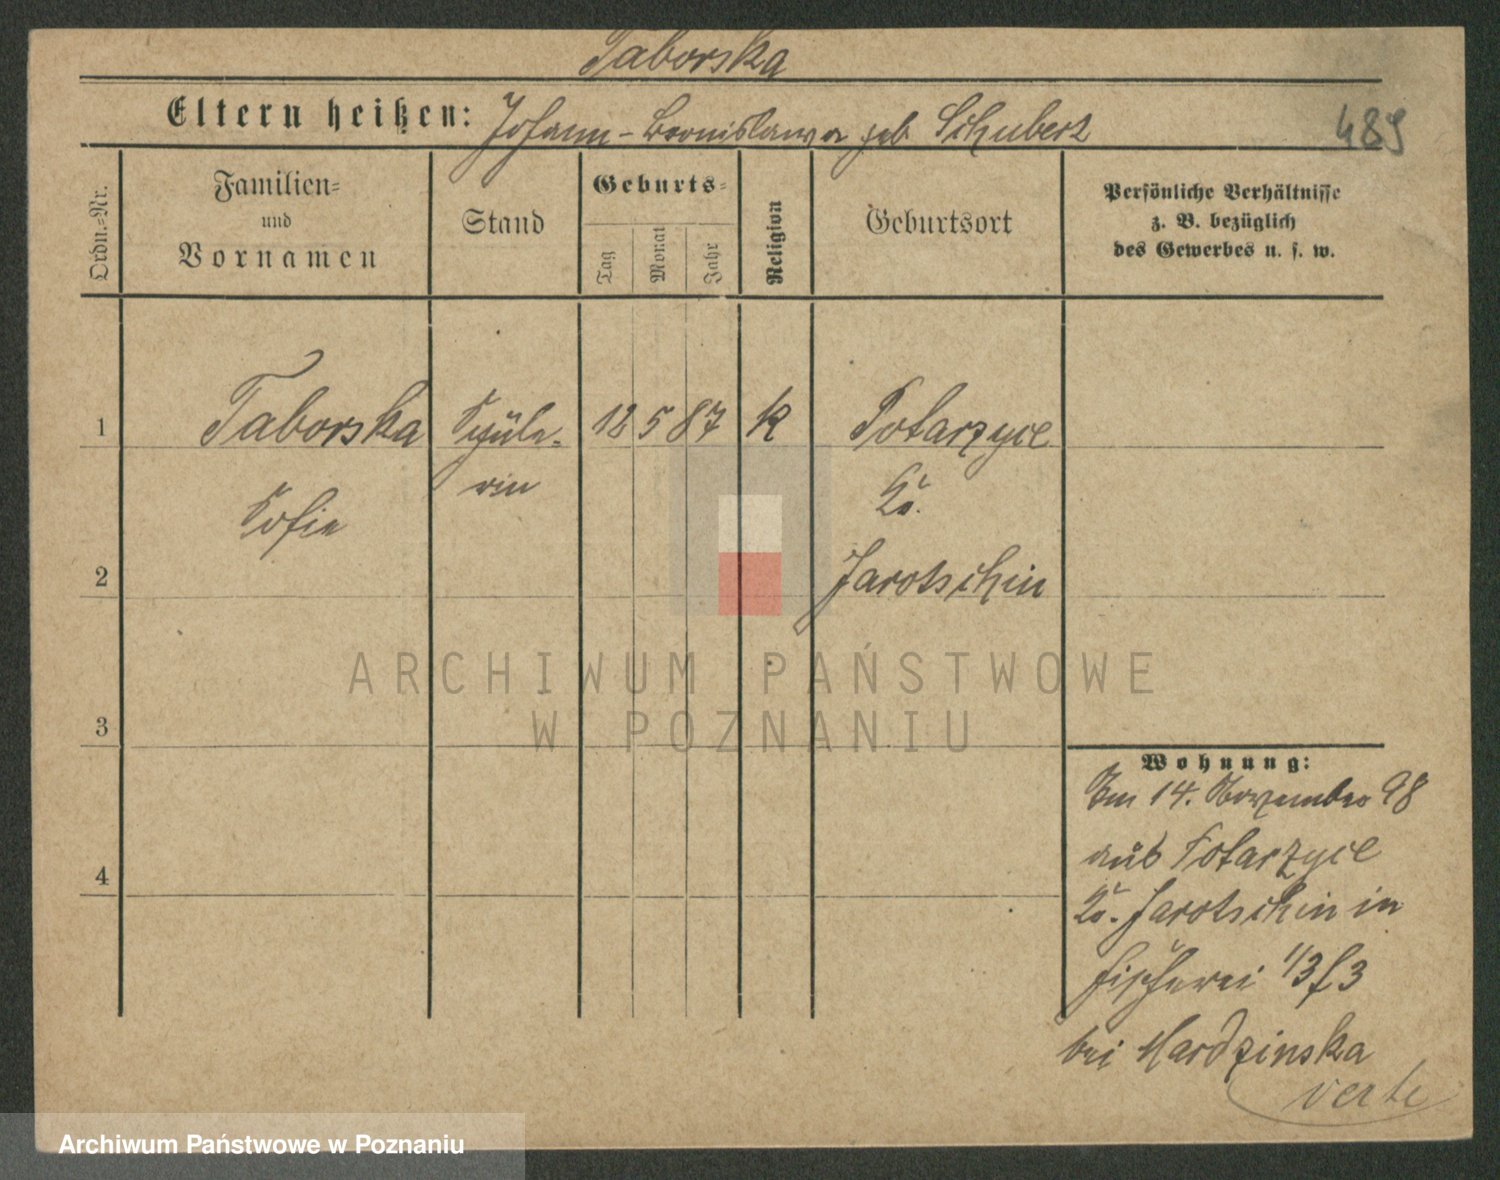 Taborska
Eltern heißen: Johann - Bronislawa geb Schubert
489
Ordn.=Nr.
Familien=
und
Vornamen
Stand
Geburts=
Tag
Monat
Jahr
Religion
Geburtsort
Persönliche Verhältnisse
z. B. bezüglich
des Gewerbes u. s. w.
1 Taborska Schüle- 12 5 87 K Potarzyce
rin Kr.
Sofie
2 Jarotschin
ARCHIWUM PAŃSTWOWE
W POZNANIU
3
Wohnung:
Am 14. November 98
aus Potarzyce
4
Kr. Jarotschin in
Fischerei 1/3 f 3
bei Mardzinska
verte
Archiwum Państwowe w Poznaniu